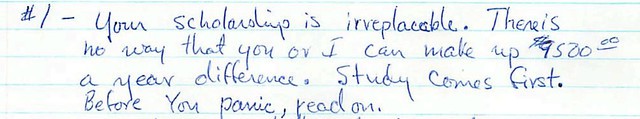 #1 - Your scholarship is irreplacable. There is
no way that you or I can make up $9520.00
a year difference. Study comes first.
Before You panic, read on.